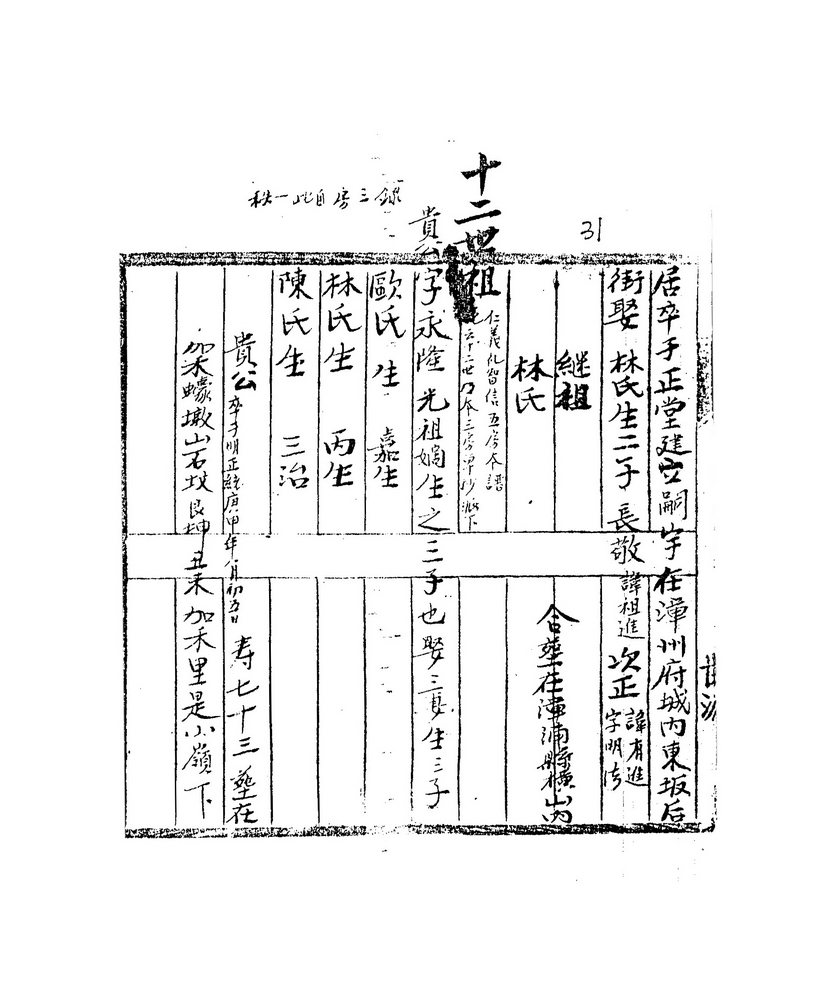 31
錄三房自此一秩
居卒于正堂建立嗣宇在漳州府城內東坂后
街娶 林氏生二子 長敬 諱祖進 次正 諱有進 字明
继祖
林氏
合塟在漳浦縣橫山內
十二世祖
仁義礼智信五房本譜
十二世乃本三房單抄派下
貴公字永隆 光祖嫡生之三子也娶三妻生三子
歐氏 生 嘉生
林氏生 丙生
陳氏生 三治
貴公 卒于明正統庚申年八月初五日 寿七十三 塟在
加禾蠔墩山石坟艮坤丑未 加禾里是小嶺下